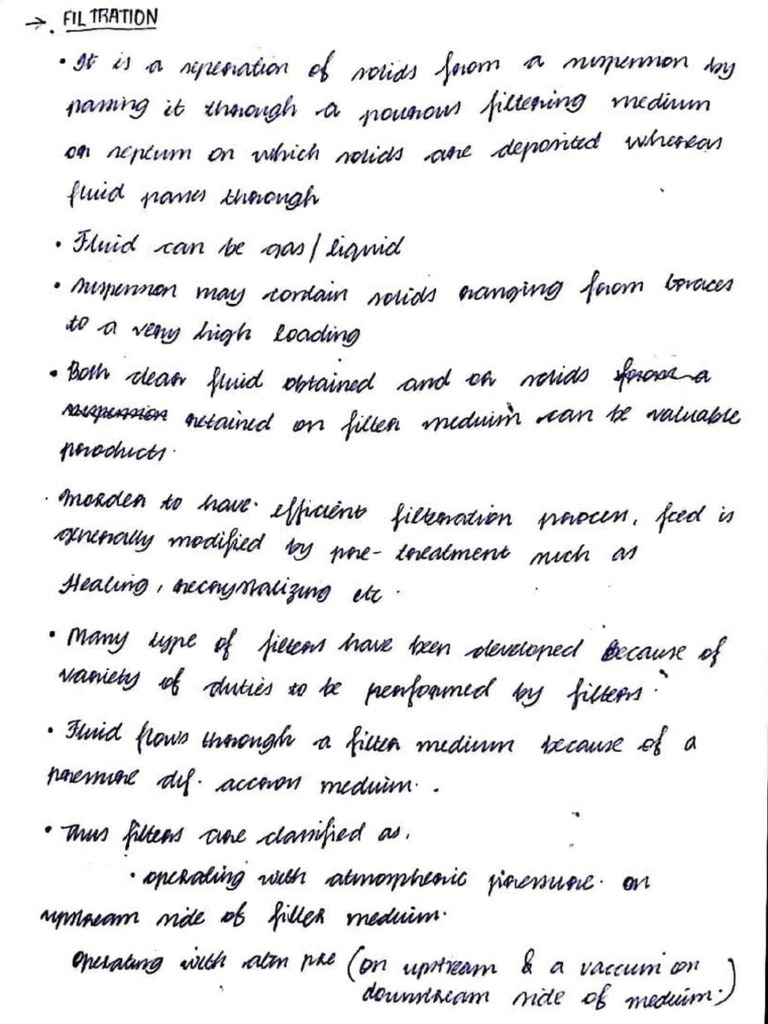 →. FILTRATION
• It is a seperation of solids from a suspension by
passing it through a pourous filtering medium
or septum on which solids are deposited whereas
fluid passes through
• Fluid can be gas/liquid
• suspension may contain solids ranging from traces
to a very high loading
• Both clear fluid obtained and or solids from a
suspension retained on filter medium can be valuable
products.
. Inorder to have efficient filteration process, feed is
generally modified by pre-treatment such as
Heating, recrystalizing etc.
• Many type of filters have been developed because of
variety of duties to be performed by filters.
• Fluid flows through a filter medium because of a
pressure dif. accross medium.
• Thus filters are classified as,
• operating with atmospheric pressure. on
upstream side of filter medium.
operating with atm pre (on upstream & a vaccum on
downstream side of medium.)